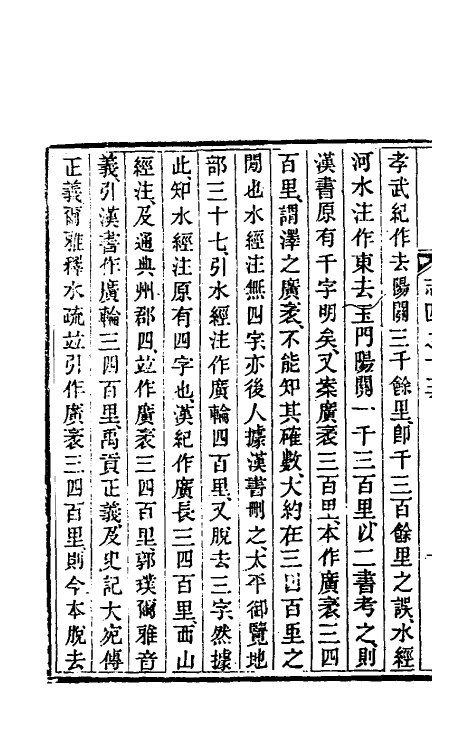 孝武紀作去陽關三千餘里卽千三百餘里之誤水經
河水注作東去玉門陽關一千三百里以二書考之則
漢書原有千字明矣又案廣袤三百里本作廣袤三四
百里謂澤之廣袤不能知其確數大約在三四百里之
閒也水經注無四字亦後人據漢書刪之太平御覽地
部三十七引水經注作廣輪四百里又脫去三字然據
此知水經注原有四字也漢紀作廣長三四百里西山
經注及通典州郡四竝作廣袤三四百里郭璞爾雅音
義引漢書作廣輪三四百里禹貢正義及史記大宛傳
正義爾雅釋水疏竝引作廣袤三四百里則今本脫去